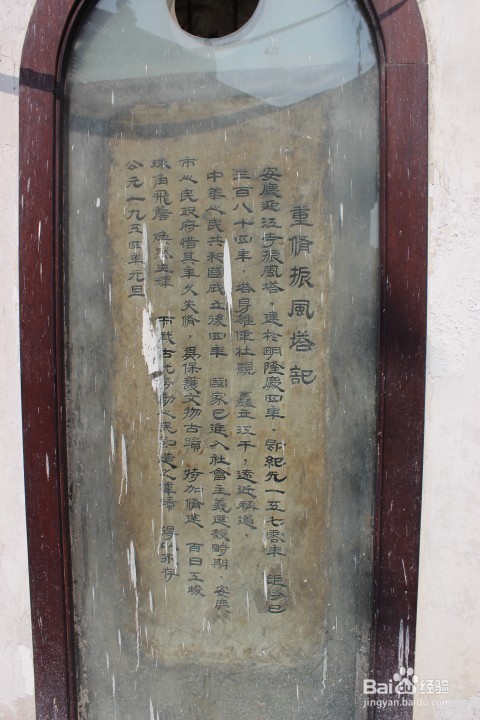 重脩振風塔記
安慶迎江寺振風塔，建於明隆慶四年，即紀元一五七零年 距今已
三百八十四年，塔身雄偉壯觀 矗立江干，遠近稱道。
中華人民共和國成立後四年 國家已進入社會主義建設時期，安慶
市人民政府惜其年久失脩，爲保護文物古蹟，特加脩建 百日工竣
珠角飛簷 煥 古代勞動人民 造之偉績 得以不存
公元一九五四年元旦
Bai 经验
jingyan.baidu.com